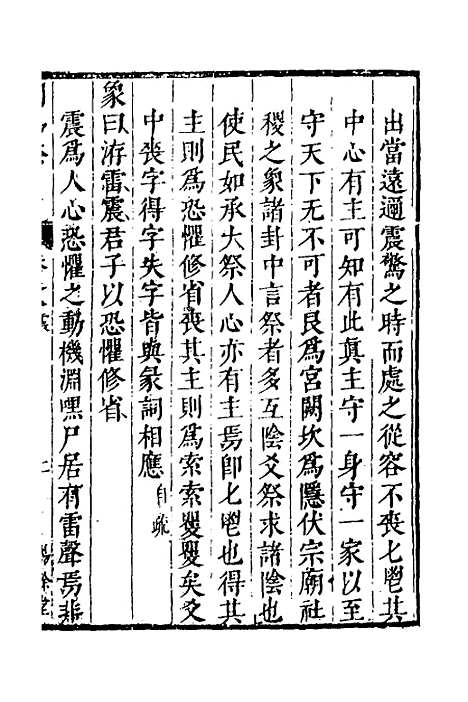 出當遠邇震驚之時而處之從容不喪匕鬯其
中心有主可知有此眞主守一身守一家以至
守天下无不可者艮爲宮闕坎爲隱伏宗廟社
稷之象諸卦中言祭者多互陰爻祭求諸陰也
使民如承大祭人心亦有主焉卽匕鬯也得其
主則爲恐懼修省喪其主則爲索索矍矍矣爻
中喪字得字失字皆與彖詞相應自疏
象曰洊雷震君子以恐懼修省
震爲人心恐懼之動機淵嘿尸居有雷聲焉非